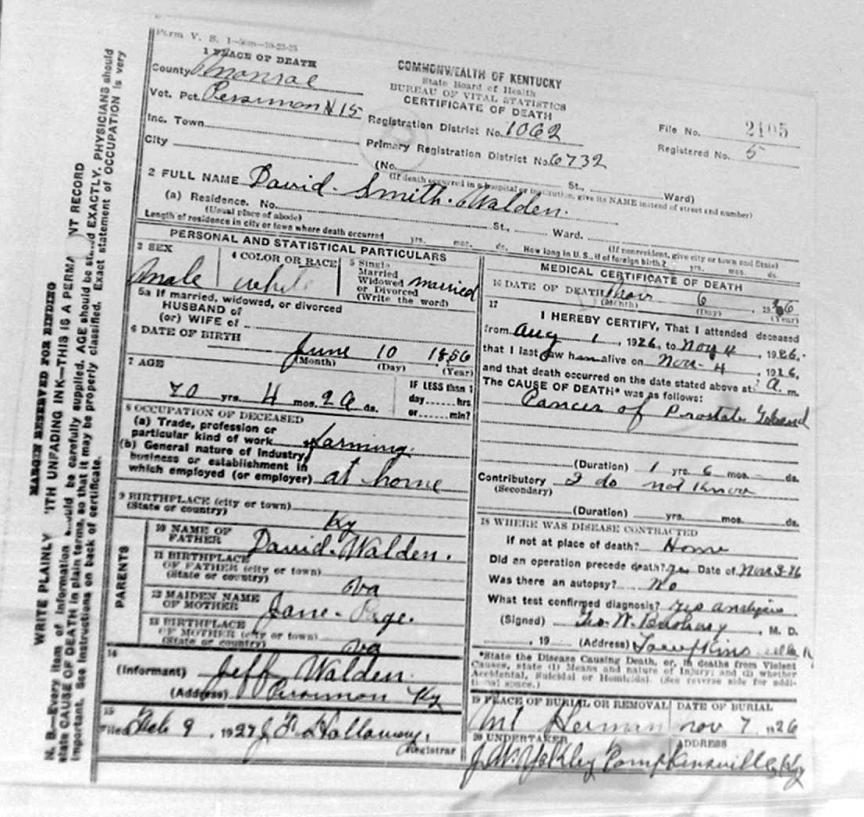 Form V. S. 1
1 PLACE OF DEATH
County Monroe
COMMONWEALTH OF KENTUCKY
State Board of Health
BUREAU OF VITAL STATISTICS
CERTIFICATE OF DEATH
Vot. Pct. Persimmon N 15
Registration District No. 1062
File No. 2105
Inc. Town
Primary Registration District No. 6732
Registered No. 5
City
(No. St., Ward)
(If death occurred in a hospital or institution, give its NAME instead of street and number)
2 FULL NAME David Smith Walden.
(a) Residence. No. St., Ward.
(Usual place of abode) (If nonresident, give city or town and State)
Length of residence in city or town where death occurred yrs. mos. ds. How long in U. S., if of foreign birth? yrs. mos. ds.
PERSONAL AND STATISTICAL PARTICULARS
3 SEX male
4 COLOR OR RACE white
5 Single Married Widowed or Divorced (Write the word) married
5a If married, widowed, or divorced
HUSBAND of
(or) WIFE of
6 DATE OF BIRTH
June 10 1856
(Month) (Day) (Year)
7 AGE
70 yrs. 4 mos. ds.
IF LESS than 1
day hrs
or min?
8 OCCUPATION OF DECEASED
(a) Trade, profession or
particular kind of work farming.
(b) General nature of industry,
business or establishment in
which employed (or employer) at home
9 BIRTHPLACE (city or town)
(State or country) Ky
PARENTS
10 NAME OF
FATHER David Walden.
11 BIRTHPLACE
OF FATHER (city or town)
(State or country) Va
12 MAIDEN NAME
OF MOTHER Jane Page.
13 BIRTHPLACE
OF MOTHER (city or town)
(State or country) Va
14
(Informant) Jeff Walden
(Address) Persimmon Ky
15
Filed Feb 9, 1927 Registrar
MEDICAL CERTIFICATE OF DEATH
16 DATE OF DEATH Nov 6 1926
(Month) (Day) (Year)
17
I HEREBY CERTIFY, That I attended deceased
from Aug 1, 1926, to Nov 4, 1926.
that I last saw him alive on Nov 4, 1926,
and that death occurred on the date stated above at A. m.
The CAUSE OF DEATH* was as follows:
Cancer of Prostate Gland
(Duration) 1 yrs. 6 mos. ds.
Contributory I do not know
(Secondary)
(Duration) yrs. mos. ds.
18 WHERE WAS DISEASE CONTRACTED
if not at place of death? Home
Did an operation precede death? yes Date of Nov 3-26
Was there an autopsy? No
What test confirmed diagnosis? analysis
(Signed) Geo. W. Bushong, M. D.
, 19 (Address)
*State the Disease Causing Death, or, in deaths from Violent
Causes, state (1) Means and nature of Injury; and (2) whether
Accidental, Suicidal or Homicidal. (See reverse side for addi-
tional space.)
19 PLACE OF BURIAL OR REMOVAL
DATE OF BURIAL
Mt Herman Nov 7 1926
20 UNDERTAKER
ADDRESS
J. W. Yokley Tompkinsville Ky
MARGIN RESERVED FOR BINDING
WRITE PLAINLY WITH UNFADING INK—THIS IS A PERMANENT RECORD
N. B.—Every item of information should be carefully supplied. AGE should be stated EXACTLY. PHYSICIANS should
state CAUSE OF DEATH in plain terms, so that it may be properly classified. Exact statement of OCCUPATION is very
important. See instructions on back of certificate.